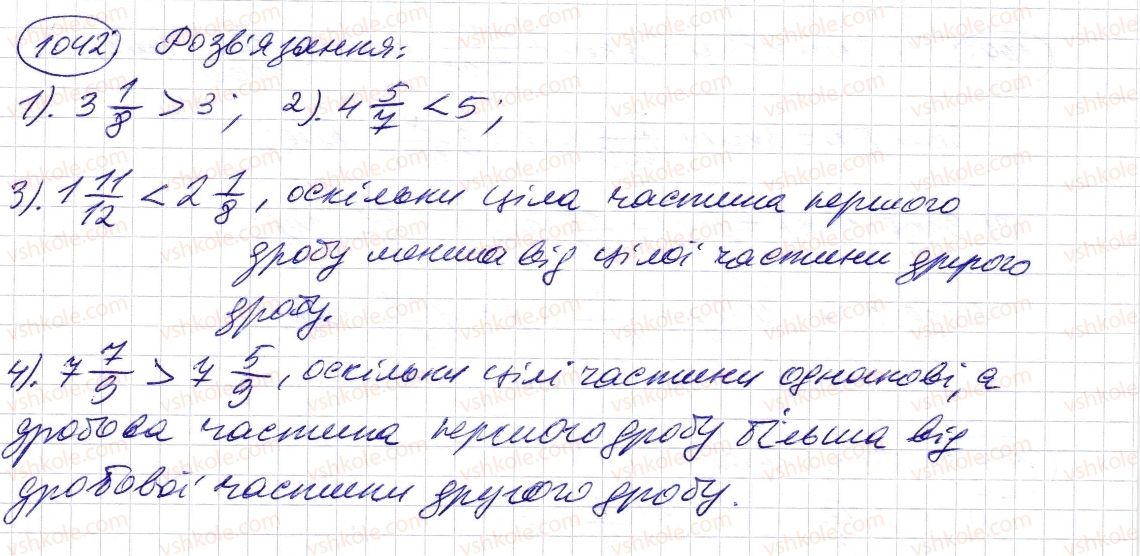 1042) Розв'язання:
1). 3 1/8 > 3; 2). 4 5/7 < 5;
3). 1 11/12 < 2 1/8, оскільки ціла частина першого
дробу менша від цілої частини другого
дробу.
4). 7 7/9 > 7 5/9, оскільки цілі частини однакові, а
дробова частина першого дробу більша від
дробової частини другого дробу.